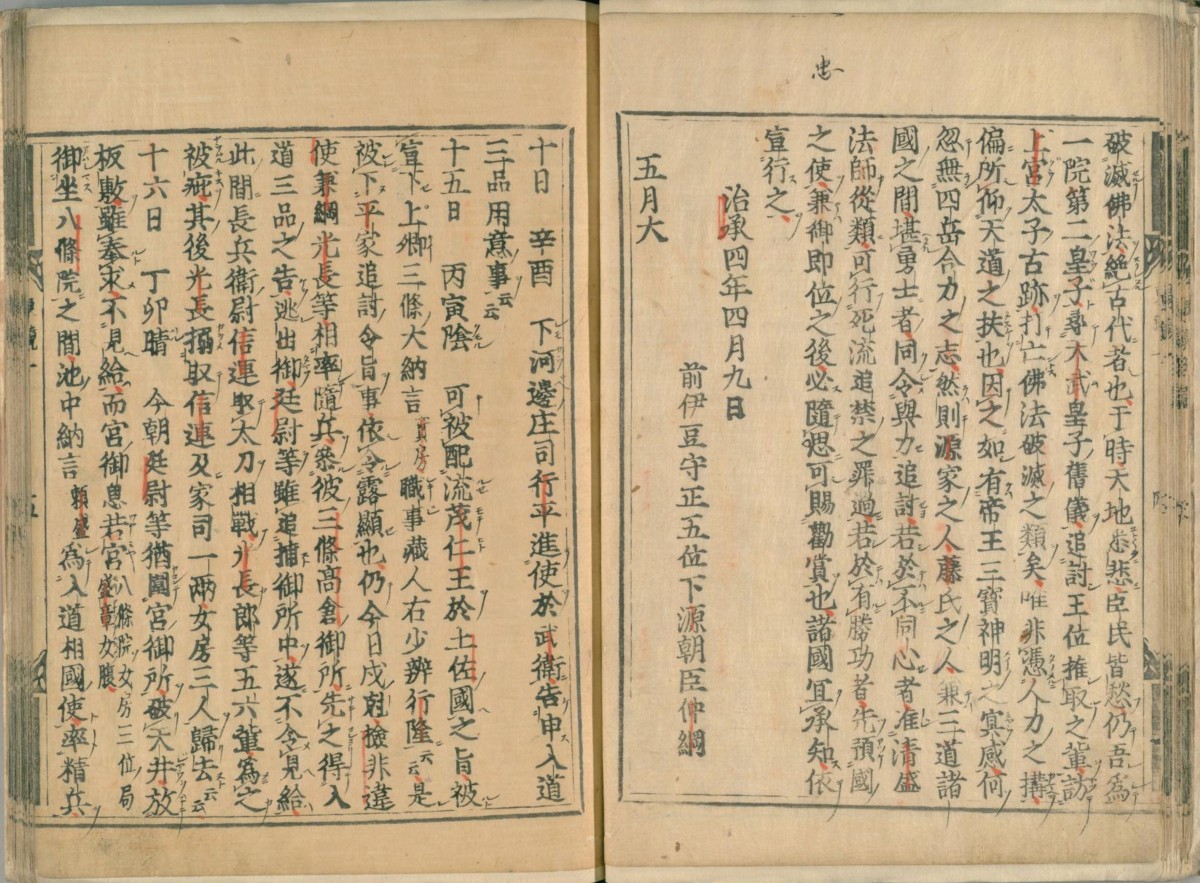 忠
破滅佛法絶古代者也于時天地悉悲臣民皆愁仍吾爲
一院第二皇子尋天武皇子舊儀追討王位推取之輩訪
上宮太子古跡打亡佛法破滅之類矣唯非憑人力之搆
偏所仰天道之扶也因之如有帝王三寶神明之冥感何
忽無四岳合力之志然則源家之人藤氏之人兼三道諸
國之間堪勇士者同令與力追討若於不同心者准清盛
法師從類可行死流追禁之罪過若於有勝功者先預國
之使兼御即位之後必隨思可賜勸賞也諸國冝承知依
宣行之
治承四年四月九日
前伊豆守正五位下源朝臣仲綱
五月大
十日 辛酉 下河邊庄司行平進使於武衛告申入道
三品用意事云云
十五日 丙寅陰 可被配流茂仁王於土佐國之旨被
宣下上卿三條大納言實房職事藏人右少辨行隆云云是
被下平家追討令旨事依令露顯也仍今日戌尅檢非違
使兼綱光長等相率隨兵參彼三條高倉御所先之得入
道三品之告逃出御廷尉等雖追捕御所中遂不令見給
此間長兵衛尉信連取太刀相戰光長郎等五六輩爲之
被疵其後光長搦取信連及家司一兩女房三人歸去云云
十六日 丁卯晴 今朝廷尉等猶圍宮御所破天井放
板敷雖奉求不見給而宮御息若宮八條院女房三位局盛章女腹
御坐八條院之間池中納言頼盛爲入道相國使率精兵